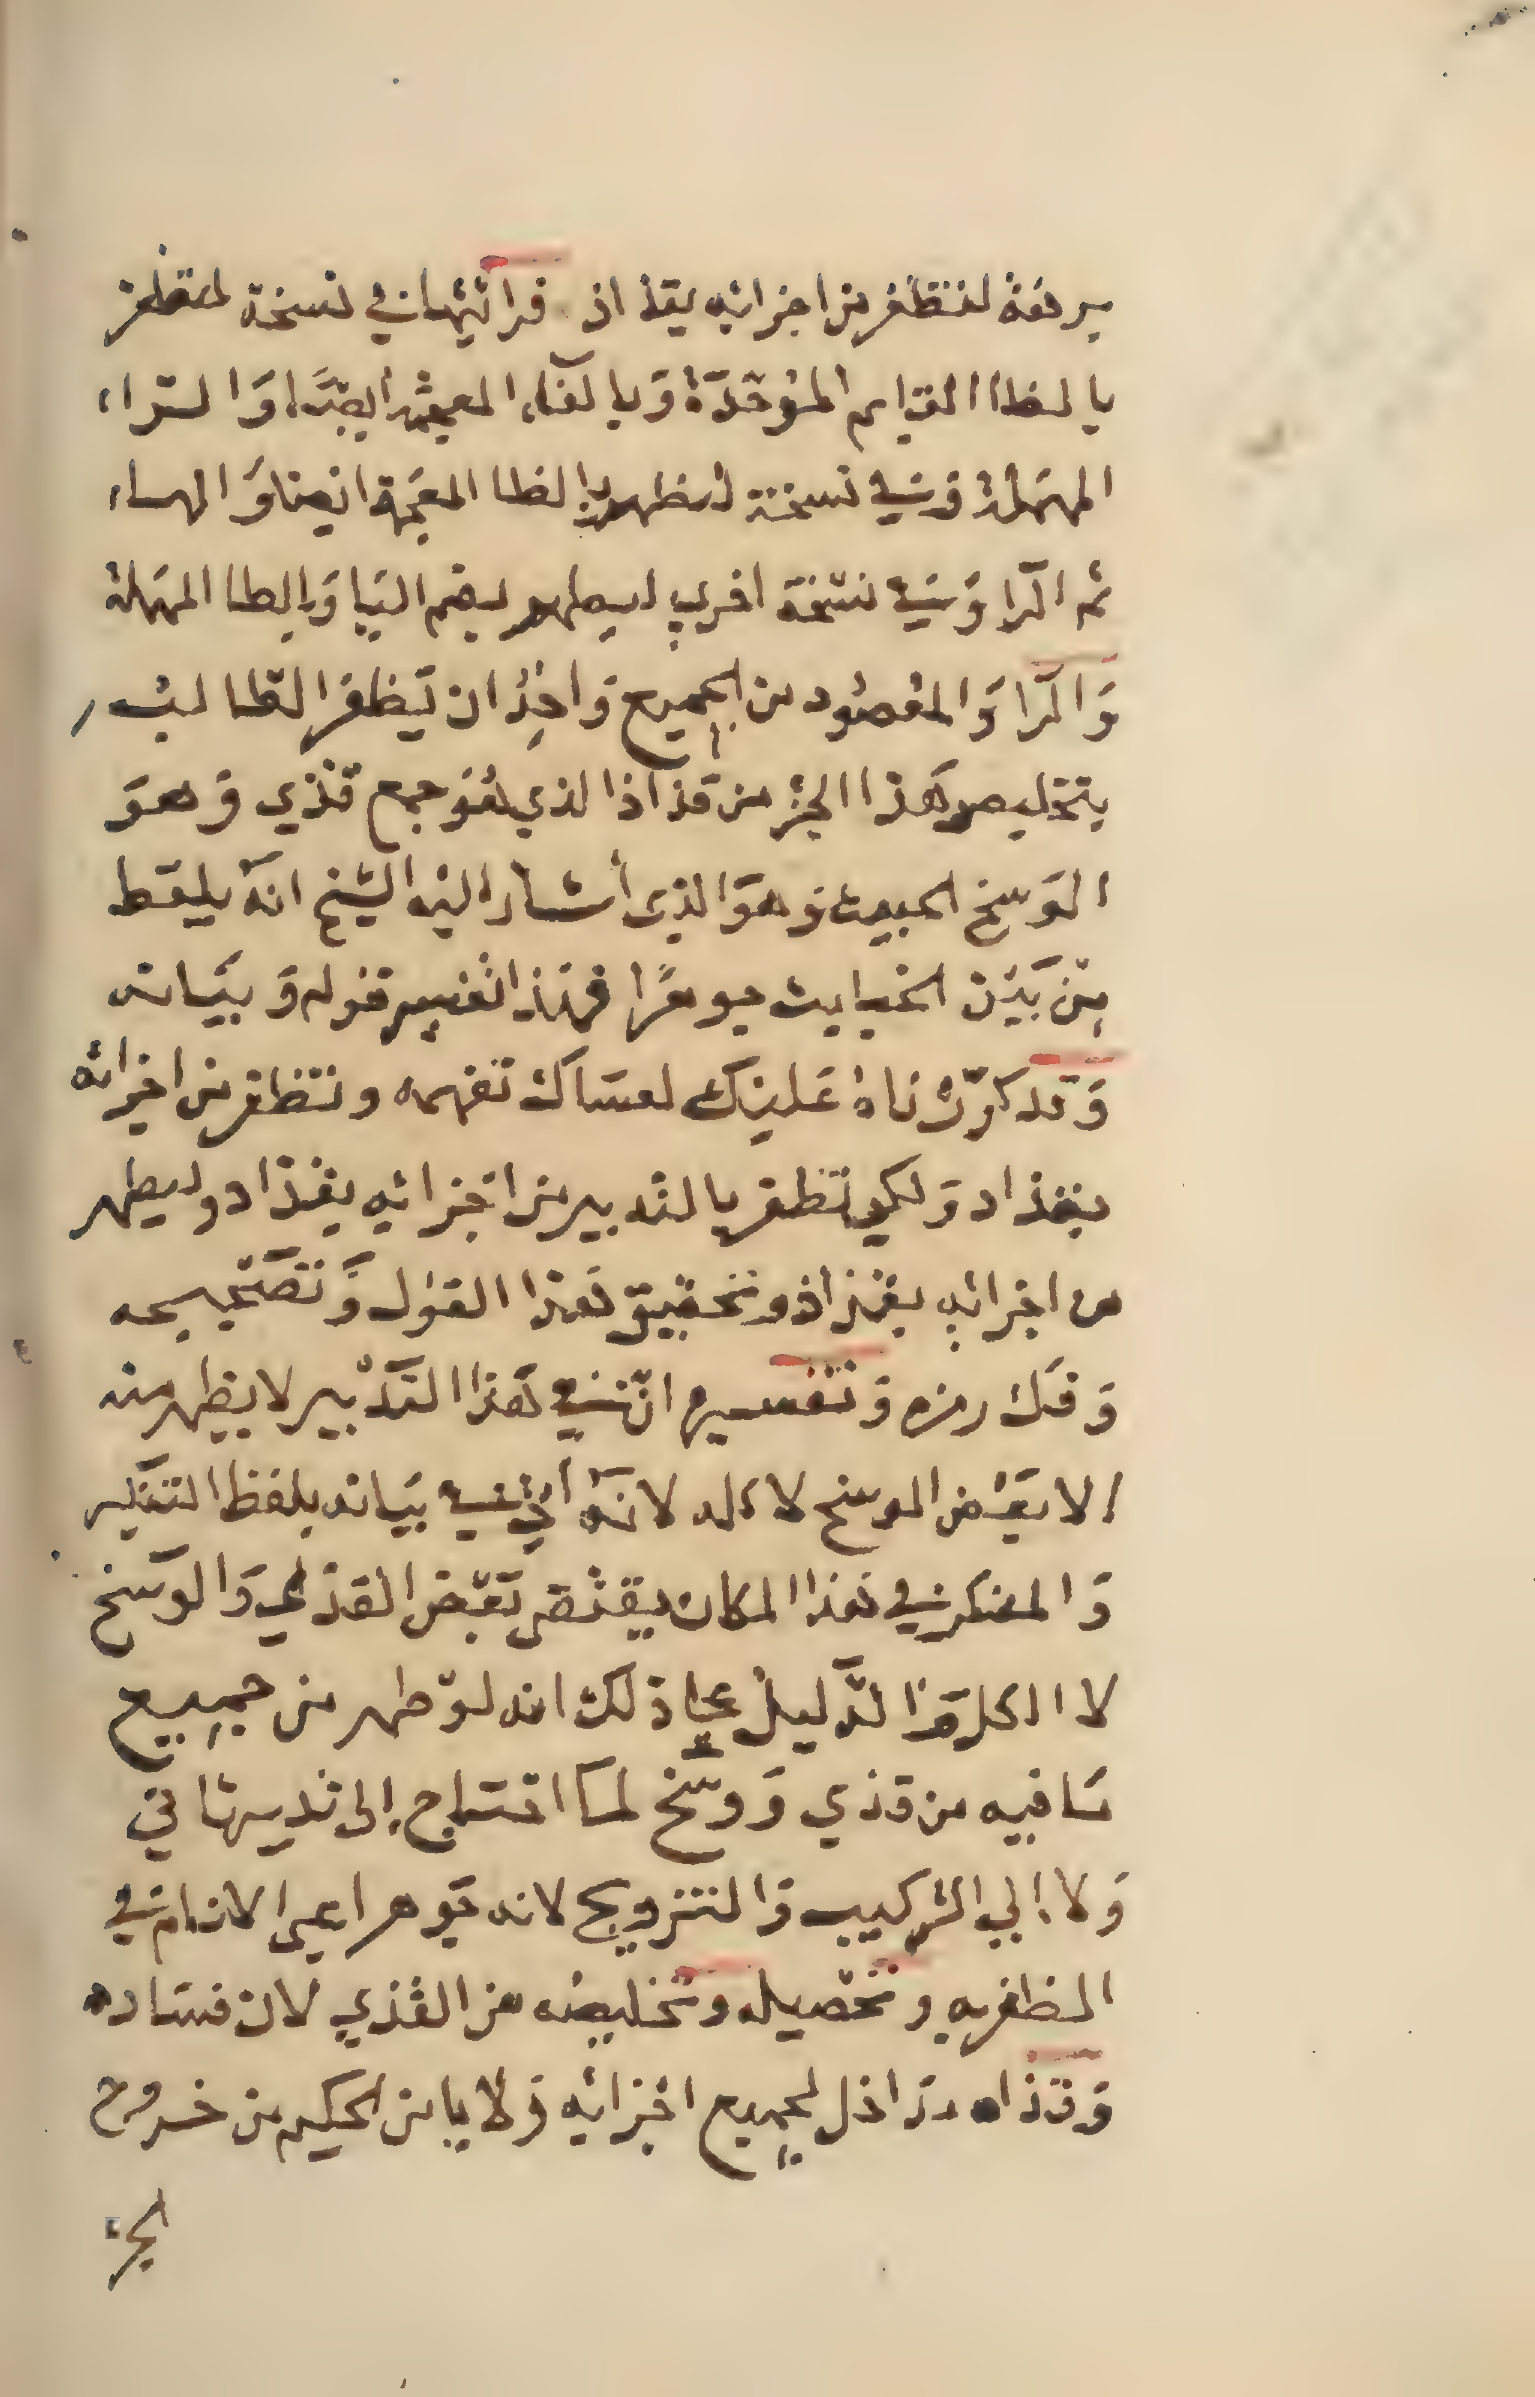 برفعه لتظفر من اجزائه بقذاذ قرأتيها في نسخة لتظفر
بالظا القايم الموحدة وبالفاء المعجمه ايضا والراء
المهملة وفي نسخة ليظهر بالظا المعجمة ايضا والهاء
ثم الرا وفي نسخة اخري ليطهر بضم اليا وبالطا المهملة
والرا والمقصود من الجميع واحد ان يظفر الطالب
بتخليص هذا الجزء من قذاذا الذي هو جمع قذي وهو
الوسخ الخبيث وهو الذي أشار اليه الشيخ انه يلقط
من بين الخبايث جوهرا فهذا تفسير قوله وبيانه
وقد كررناه عليك لعساك تفهمه وتظفر من اجزائه
بقذاذ ولكي تظفر بالتدبير من اجزائه بقذاذ وليطهر
من اجزائه بقذاذ وتحقيق هذا القول وتصحيحه
وفك رمزه وتفسيره ان في هذا التدبير لا يظهر منه
الا بعض الوسخ لا كله لانه أتي في بيانه بلفظ التنكير
والمنكر في هذا المكان يقتضي بعض القذي والوسخ
لا الكل والدليل علي ذلك انه لو طهر من جميع
ما فيه من قذي ووسخ لما احتاج إلى تدبيرنا في
ولا إلي التركيب والتزويج لانه جوهر اعيى الانام في
الظفر به وتحصيله وتخليصه من القذي لان فساده
وقذاه داخل لجميع اجزائه ولا يامن الحكيم من خروج
الجزء